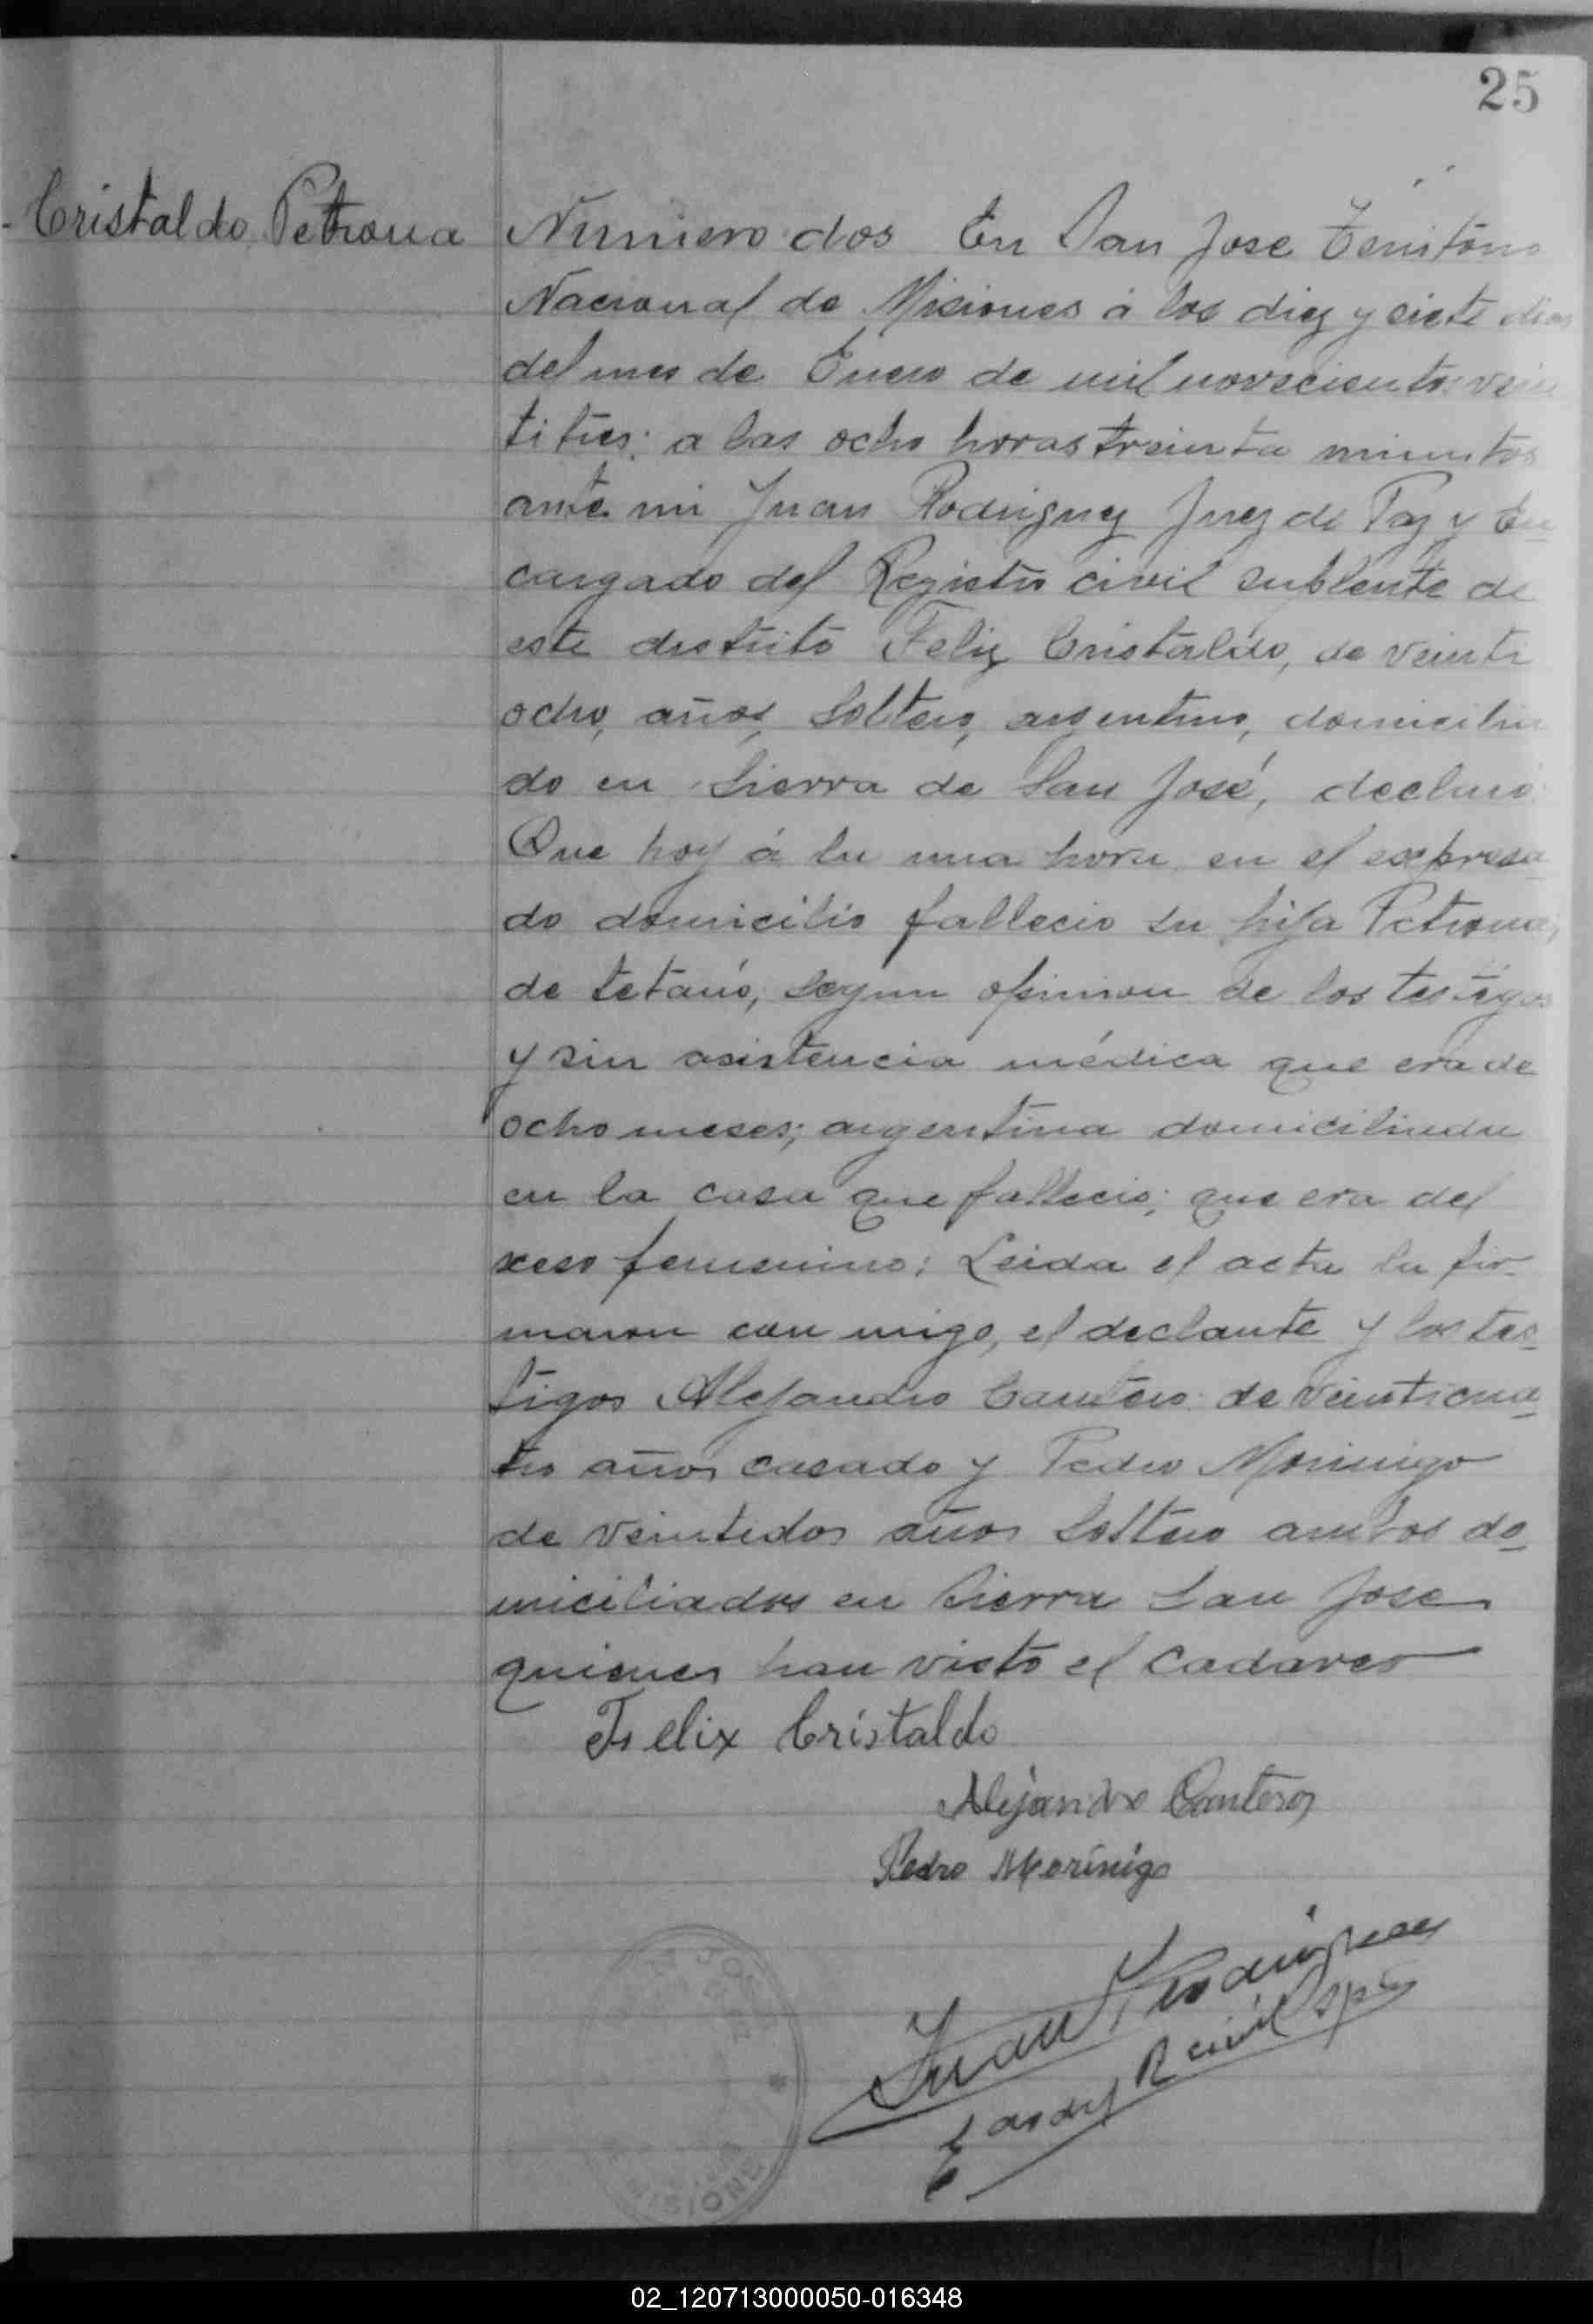 25
Cristaldo Petrona
Numero dos En San Jose Territorio
Nacional de Misiones á los diez y siete dias
del mes de Enero de mil novecientos vein
titres; a las ocho horas treinta minutos
ante mi Juan Rodriguez Juez de Paz y En
cargado del Registro civil suplente de
este distrito Feliz Cristaldo, de veinti
ocho, años, Soltero, argentino, domicilia
do en Sierra de San José, declaró
Que hoy á la una hora en el expresa
do domicilio fallecio su hija Petrona,
de tetano, segun opinion de los testigos
y sin asistencia médica que era de
ocho meses; argentina domiciliada
en la casa que fallecio; que era del
sexo femenino; Leida el acta la fir-
maron con migo, el declante y los tes
tigos Alejandro Cantero de veinticua
tro años casado y Pedro Morinigo
de veintidos años Soltero ambos do
miciliados en Sierra San Jose
quienes han visto el cadaver
Felix Cristaldo
Alejandro Canteros
Pedro Morínigo
Juan Rodriguez
R civil
02_120713000050-016348